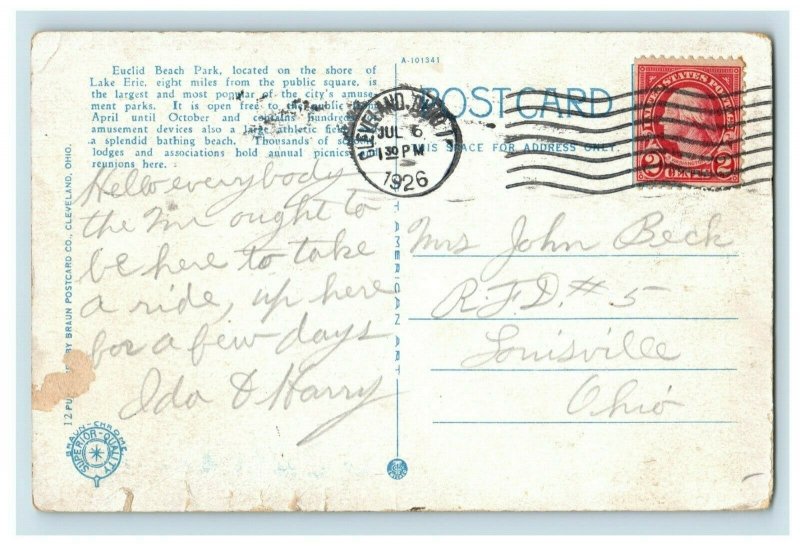 A-101341
Euclid Beach Park, located on the shore of
Lake Erie, eight miles from the public square, is
the largest and most popular of the city's amuse-
ment parks. It is open free to the public from
April until October and contains hundreds
amusement devices also a large athletic field
a splendid bathing beach. Thousands of
lodges and associations hold annual picnics
reunions here.
POST CARD
THIS SPACE FOR ADDRESS ONLY
CLEVELAND, OHIO
JUL 6
1 30 PM
1926
UNITED STATES POSTAGE
2 CENTS 2
Hello everybody
the ought to
be here to take
a ride, up here
for a few days
Ida & Harry
Mrs John Beck
R.F.D. # 5
Louisville
Ohio
12 BY BRAUN POSTCARD CO., CLEVELAND, OHIO.
AMERICAN ART
BRAUN-CHROME
SUPERIOR-QUALITY